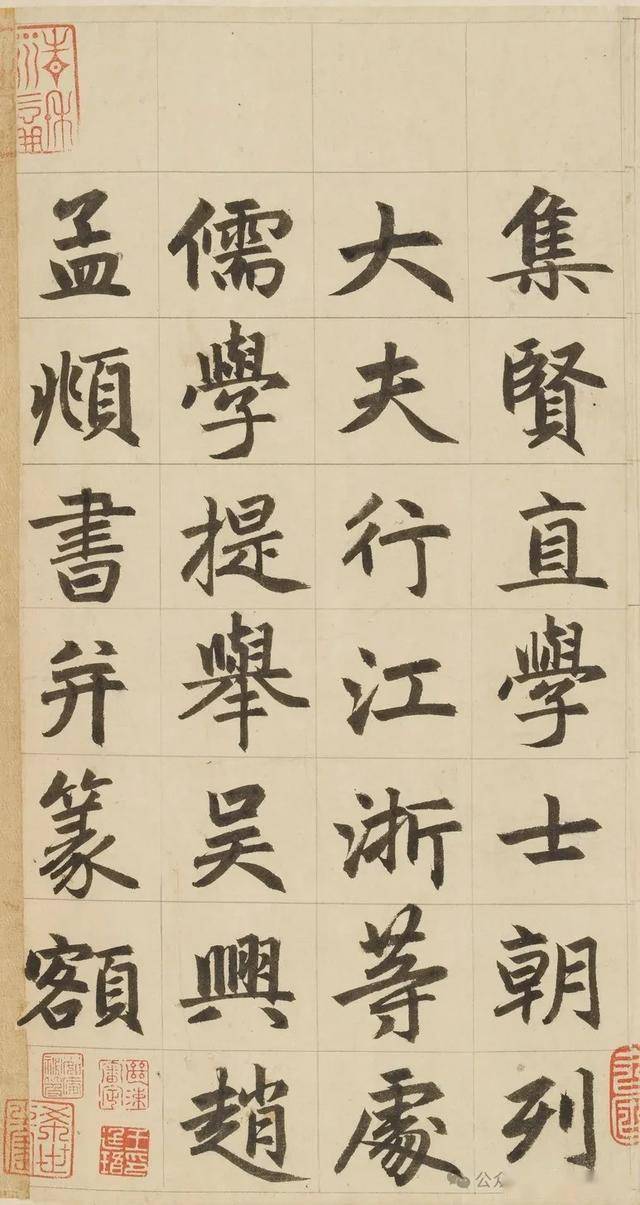 集賢直學士朝列
大夫行江浙等處
儒學提舉吳興趙
孟頫書并篆額
公众